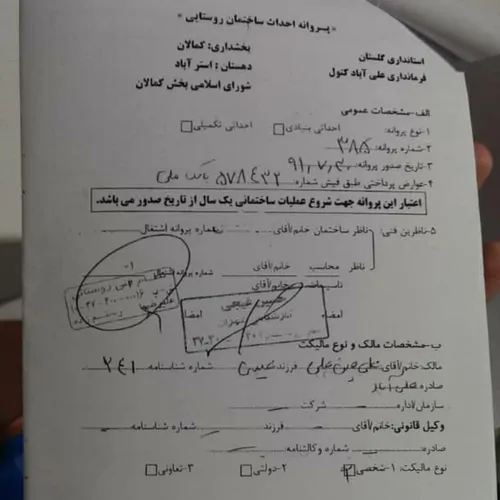 "پروانه احداث ساختمان روستایی"
استانداری گلستان
بخشداری: کمالان
فرمانداری علی آباد کتول
دهستان: استر آباد
شورای اسلامی بخش کمالان
الف-مشخصات عمومی
۱-نوع پروانه: احداثی بنیادی احداثی تکمیلی
۲-شماره پروانه: ۳۸۵
۳-تاریخ صدور پروانه: ۹۱,۷,۳۰
۴-عوارض پرداختی طبق فیش شماره ۵۷۸۴۳۲ بانک ملی
اعتبار این پروانه جهت شروع عملیات ساختمانی یک سال از تاریخ صدور می باشد.
۵-ناظرین فنی: ناظر ساختمان خانم/آقای شماره پروانه اشتغال
ناظر محاسب خانم/آقای شماره پروانه
تاسیسات خانم/آقای
امضاء امضا
ب-مشخصات مالک و نوع مالکیت
مالک: خانم/آقای فرزند شماره شناسنامه ۲۴۱
صادره
سازمان/اداره شرکت
وکیل قانونی: خانم/آقای فرزند شماره شناسنامه
صادره: شماره وکالتنامه
نوع مالکیت: ۱-شخصی ۲-دولتی ۳-تعاونی